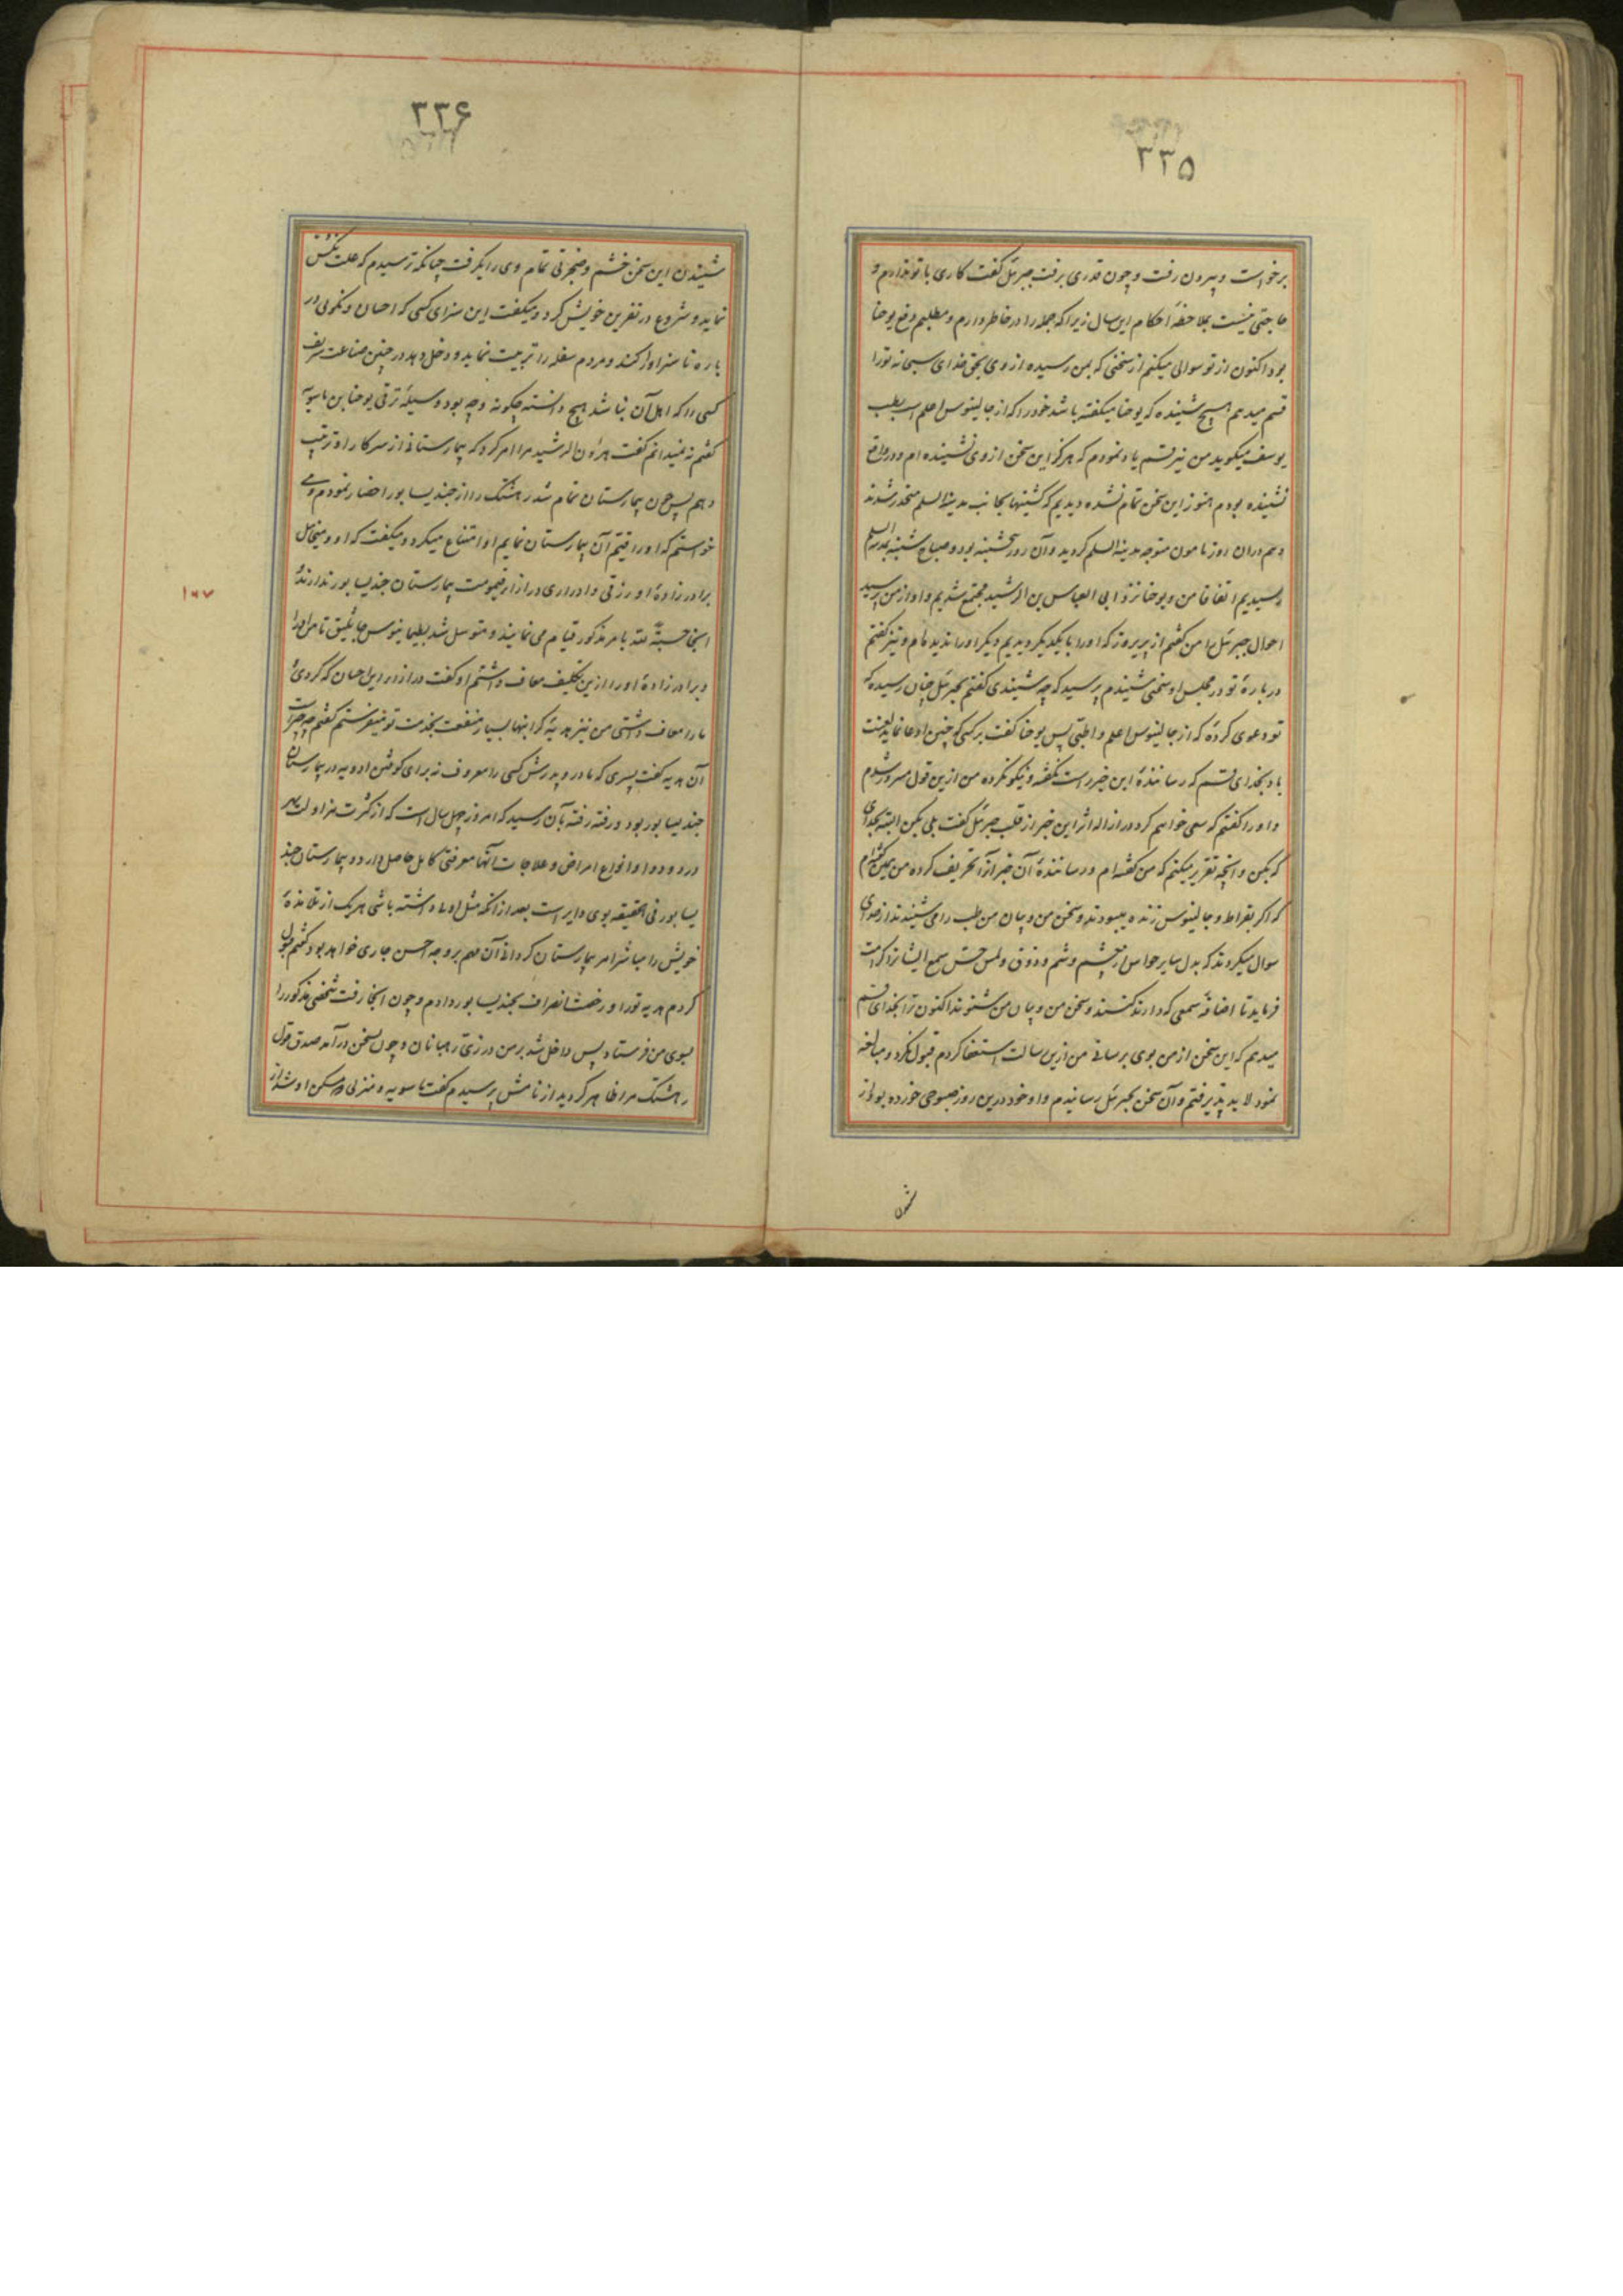 ۳۳۵
برخواست و بیرون رفت و چون قدری برفت جبرئل گفت کاری با تو ندارم و
حاجتی نیست بملاحظهٔ احکام این سال زیرا که جمله را در خاطر دارم و مطلبم دفع یوحنا
بود اکنون از تو سوالی میکنم از سخنی که بمن رسیده از وی بحق خدای سبحانه تو را
قسم میدهم هیچ شنیده که یوحنا میکفته باشد خود را که از جالینوس اعلم است بطب
یوسف میکوید من نیز قسم یاد نمودم که هرکز این سخن از وی نشنیده ام و در واقع
نشنیده بودم هنوز این سخن تمام نشده دیدیم که کشتیها بجانب مدینة السلم منحدر شدند
و هم دران روز مامون متوجه مدینة السلم کردید و آن روز پنجشنبه بود و صباح شنبه بمدینة السلم
رسیدیم اتفاقا من و یوحنا نزد ابی العباس بن الرشید مجتمع شدیم و او از من پرسید
احوال جبرئل را من کفتم از پریروز که او را با یکدیکر دیدیم دیکر او را ندیده ام و نیز کفتم
دربارهٔ تو در مجلس او سخنی شنیدم پرسید که چه شنیدی کفتم بجبرئل چنان رسیده که
تو دعوی کردهٔ که از جالینوس اعلم و اطبی پس یوحنا کفت بر کسی که چنین ادعا نماید لعنت
باد بخدای قسم که رسانندهٔ این خبر راست نکفته و نیکو نکرده من ازین قول مسرور شدم
و او را کفتم که سعی خواهم کرد در ازاله اثر این خبر از قلب جبرئل کفت بلی بکن البته بخدای
که بکن و آنچه تقریر میکنم که من کفته ام و رسانندهٔ آن خبر آنرا تحریف کرده من چنین کفته ام
که اکر بقراط و جالینوس زنده میبودند و سخن من و بیان من طب را می شنیدند از خدای
سوال میکردند که بدل سایر حواس از چشم و شم و ذوق و لمس حس سمع ایشانرا کرامت
فرماید تا اضافهٔ سمعی که دارند کنند و سخن من و بیان من شنوند اکنون ترا بخدای قسم
میدهم که این سخن از من بوی برسانی من ازین رسالت استعفا کردم قبول نکرد و مبالغه
نمود لابد پذیرفتم و آن سخن بجبرئل رسانیدم و او خود درین روز صبوحی خورده بود از
۳۳۶
شنیدن این سخن خشم و ضجرتی تمام وی را بکرفت چنانکه ترسیدم که علت نکس
نماید و شروع در نفرین خویش کرد و میکفت این سزای کسی که احسان و نکوئی در
باره ناسزاوار کند و مردم سفله را تربیت نماید و دخل دهد در چنین صناعت شریف
کسی را که اهل آن نباشد هیچ دانسته چکونه و چه بود وسیلهٔ ترقی یوحنا بن ماسویه
کفتم نه نمیدانم کفت هارون الرشید مرا امر کرد که بیمارستانی از سرکار او ترتیب
دهم پس چون بیمارستان تمام شد رهشتک را از جندیسابور احضار نمودم و می
خواستم که او را قیّم آن بیمارستان نمایم او امتناع میکرد و میکفت که او و میخائل
برادرزادهٔ او رزقی و ادراری در ازاء قیمومت بیمارستان جندیسابور ندارند
اینجا حسبة لله بامر مذکور قیام می نمایند و متوسل شد بطیمانیوس جاثلیق تا من او را
و برادرزادهٔ او را ازین تکلیف معاف داشتم او کفت در ازاء این احسان که کردی
ما را معاف داشتی من نیز هدیهٔ کرانبها بسیار منفعت بخدمت تو میفرستم کفتم چه چیز است
آن هدیه کفت پسری که مادر و پدرش کسی را معروف نه برای کوفتن ادویه در بیمارستان
جندیسابور بود و رفته رفته بآن رسید که امروز چهل سال است که از کثرت مزاولت بهر
درد و دوا و انواع امراض و علاجات آنها معرفتی کامل حاصل دارد و بیمارستان جند
یسابور فی الحقیقه بوی دایر است بعد از آنکه مثل او را داشته باشی هر یک از تلامذهٔ
خویش را مباشر امر بیمارستان کردانی آن مهم بر وجه احسن جاری خواهد بود کفتم قبول
کردم هدیه تو را و رخصت انصراف بجندیسابور دادم و چون آنجا رفت شخص مذکور را
بسوی من فرستاد پس داخل شد بر من در زیّ رهبانان و چون بسخن درآمد صدق قول
رهشتک مرا ظاهر کردید از نامش پرسیدم کفت ماسویه و منزلی و مسکن او شد از
شنیدن
۱۶۷